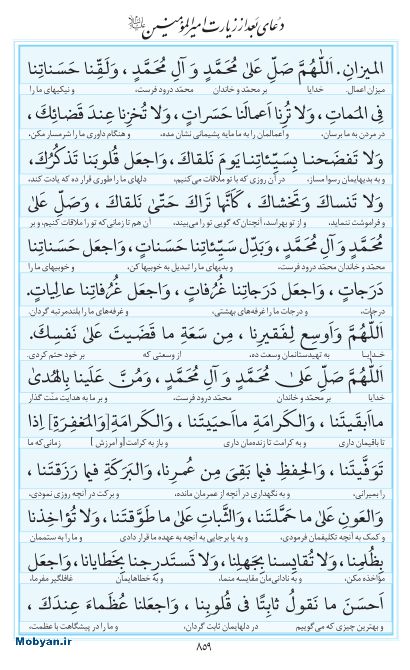 دعای بعد از زیارت امیرالمؤمنین
المیزانِ. اَللّٰهُمَّ صَلِّ عَلیٰ مُحَمَّدٍ وَ آلِ مُحَمَّدٍ ، وَ لَقِّنا حَسَناتِنا
میزان اعمال. خدایا بر محمّد و خاندان محمّد درود فرست، و نیکیهای ما را
فِی المَماتِ، وَ لا تُرِنا اَعمالَنا حَسَراتٍ ، وَ لا تُخزِنا عِندَ قَضائِكَ ،
در مردن به ما برسان، و اعمالمان را به ما مایه پشیمانی نشان مده، و هنگام داوری ما را شرمسار مکن،
وَ لا تَفضَحنا بِسَیِّئاتِنا یَومَ نَلقاكَ ، وَ اجعَل قُلوبَنا تَذكُرُكَ ،
و به بدیهایمان رسوا مساز، در آن روزی که با تو ملاقات می‌کنیم، دلهای ما را طوری قرار ده که یادت کند،
وَ لا تَنساكَ وَ تَخشاكَ ، كَاَنَّها تَراكَ حَتّیٰ تَلقاكَ ، وَ صَلِّ عَلیٰ
و فراموشت ننماید، و از تو بهراسد، آنچنان که گویی تو را می‌بیند، آن هم تا زمانی که تو را ملاقات کنیم، و بر
مُحَمَّدٍ وَ آلِ مُحَمَّدٍ ، وَ بَدِّل سَیِّئاتِنا حَسَناتٍ ، وَ اجعَل حَسَناتِنا
محمّد و خاندان محمّد درود فرست، و بدیهای ما را تبدیل به خوبیها کن، و خوبیهای ما را
دَرَجاتٍ ، وَ اجعَل دَرَجاتِنا غُرُفاتٍ ، وَ اجعَل غُرُفاتِنا عالِیاتٍ .
درجات، و درجات ما را غرفه‌های بهشتی، و غرفه‌های ما را بلندمرتبه گردان.
اَللّٰهُمَّ وَ اَوسِع لِفَقیرِنا ، مِن سَعَةِ ما قَضَیتَ عَلیٰ نَفسِكَ .
خدایا به تهیدستانمان وسعت ده، از وسعتی که بر خود حتم کردی.
اَللّٰهُمَّ صَلِّ عَلیٰ مُحَمَّدٍ وَ آلِ مُحَمَّدٍ ، وَ مُنَّ عَلَینا بِالهُدیٰ
خدایا بر محمّد و خاندان محمّد درود فرست، و بر ما به هدایت منّت گذار
ما اَبقَیتَنا ، وَ الكَرامَةِ ما اَحیَیتَنا ، وَ الكَرامَةِ [وَ المَغفِرَةِ] اِذا
تا باقیمان داری و به کرامت تا زنده‌مان داری و باز به کرامت [و آمرزش] زمانی که ما
تَوَفَّیتَنا ، وَ الحِفظِ فیما بَقِیَ مِن عُمرِنا، وَ البَرَكَةِ فیما رَزَقتَنا ،
را بمیرانی، و به نگهداری در آنچه از عمرمان مانده، و برکت در آنچه روزی نمودی،
وَ العَونِ عَلیٰ ما حَمَّلتَنا ، وَ الثَّباتِ عَلیٰ ما طَوَّقتَنا ، وَ لا تُؤاخِذنا
و کمک به آنچه تکلیفمان فرمودی، و به پا برجایی به آنچه به عهده ما قرار دادی و ما را به ستممان
بِظُلمِنا، وَ لا تُقایِسنا بِجَهلِنا، وَ لا تَستَدرِجنا بِخَطایانا ، وَ اجعَل
مؤاخذه مکن، و به نادانی‌مان مقایسه منما، و به خطاهایمان غافلگیر مفرما،
اَحسَنَ ما نَقولُ ثابِتًا فی قُلوبِنا ، وَ اجعَلنا عُظَماءَ عِندَكَ ،
و بهترین چیزی که می‌گوییم در دلهایمان ثابت گردان، و ما را در پیشگاهت با عظمت،
۸۵۹
Mobyan.ir